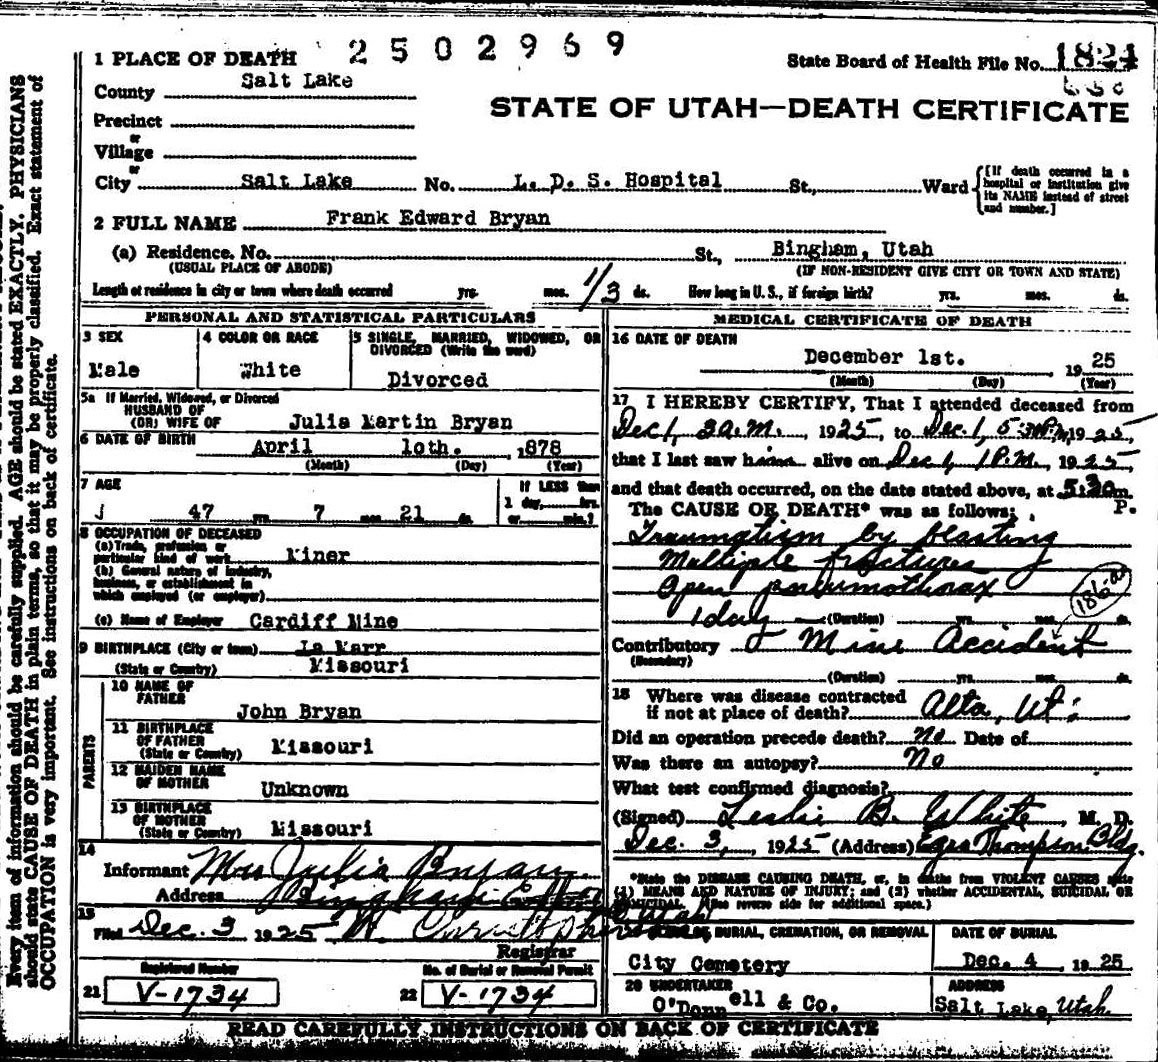 2502969
State Board of Health File No. 1824
STATE OF UTAH—DEATH CERTIFICATE
1 PLACE OF DEATH
County Salt Lake
Precinct
or
Village
or
City Salt Lake No. L. D. S. Hospital St., Ward
[If death occurred in a
hospital or institution give
its NAME instead of street
and number.]
2 FULL NAME Frank Edward Bryan
(a) Residence. No. St., Bingham, Utah
(USUAL PLACE OF ABODE) (IF NON-RESIDENT GIVE CITY OR TOWN AND STATE)
Length of residence in city or town where death occurred yrs. mos. 1/3 ds. How long in U. S., if foreign birth? yrs. mos. ds.
PERSONAL AND STATISTICAL PARTICULARS
3 SEX
Male
4 COLOR OR RACE
White
5 SINGLE, MARRIED, WIDOWED, OR
DIVORCED (Write the word)
Divorced
5a If Married, Widowed, or Divorced
HUSBAND OF
(OR) WIFE OF Julia Martin Bryan
6 DATE OF BIRTH April 1oth. 1878
(Month) (Day) (Year)
7 AGE
47 yrs. 7 mos. 21 ds.
If LESS than
1 day, hrs.
or min.?
8 OCCUPATION OF DECEASED
(a) Trade, profession or
particular kind of work Miner
(b) General nature of industry,
business, or establishment in
which employed (or employer)
(c) Name of Employer Cardiff Mine
9 BIRTHPLACE (City or town) La Marr
(State or Country) Missouri
PARENTS
10 NAME OF
FATHER
John Bryan
11 BIRTHPLACE
OF FATHER
(State or Country) Missouri
12 MAIDEN NAME
OF MOTHER
Unknown
13 BIRTHPLACE
OF MOTHER
(State or Country) Missouri
14
Informant Mrs Julia Bryan
Address Bingham Utah
15
Filed Dec. 3 1925
Registrar
Registered Number
21 V-1734
No. of Burial or Removal Permit
22 V-1734
MEDICAL CERTIFICATE OF DEATH
16 DATE OF DEATH
December 1st. 1925
(Month) (Day) (Year)
17 I HEREBY CERTIFY, That I attended deceased from
Dec 1, 3 a.m., 1925, to Dec. 1, 5:30 P.M. 1925,
that I last saw him alive on Dec 1, 1 P.M., 1925,
and that death occurred, on the date stated above, at 5:30 m.
P.
The CAUSE OF DEATH* was as follows:
Traumatism by blasting
Multiple fractures
Open pneumothorax
1 day (Duration) yrs. mos. ds.
186-a
Contributory Mine Accident
(Secondary)
(Duration) yrs. mos. ds.
18 Where was disease contracted
if not at place of death? Alta, Ut.
Did an operation precede death? no Date of
Was there an autopsy? No
What test confirmed diagnosis?
(Signed) Leslie B. White, M. D.
Dec. 3, 1925 (Address) Thompson Bldg.
*State the DISEASE CAUSING DEATH, or, in deaths from VIOLENT CAUSES state
(1) MEANS AND NATURE OF INJURY; and (2) whether ACCIDENTAL, SUICIDAL OR
HOMICIDAL. (See reverse side for additional space.)
OF BURIAL, CREMATION, OR REMOVAL
City Cemetery
DATE OF BURIAL
Dec. 4 1925
20 UNDERTAKER
O'Donnell & Co.
ADDRESS
Salt Lake, Utah.
READ CAREFULLY INSTRUCTIONS ON BACK OF CERTIFICATE
Every item of information should be carefully supplied. AGE should be stated EXACTLY. PHYSICIANS
should state CAUSE OF DEATH in plain terms, so that it may be properly classified. Exact statement of
OCCUPATION is very important. See instructions on back of certificate.